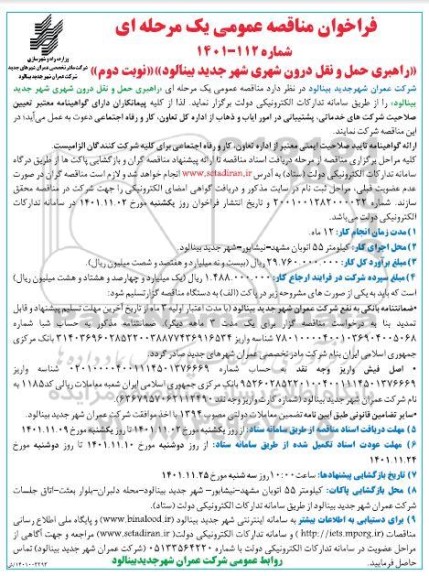 فراخوان مناقصه عمومی یک مرحله ای
شماره ۱۱۲-۱۴۰۱
«راهبری حمل و نقل درون شهری شهر جدید بینالود»«نوبت دوم»
وزارت راه و شهرسازی
شرکت عمران شهر جدید بینالود
شرکت عمران شهرجدید بینالود در نظر دارد مناقصه عمومی یک مرحله ای «راهبری حمل و نقل درون شهری شهر جدید
بینالود» را از طریق سامانه تدارکات الکترونیکی دولت برگزار نماید. لذا از کلیه پیمانکاران دارای گواهینامه معتبر تعیین
صلاحیت شرکت های خدماتی، پشتیبانی در امور ایاب و ذهاب از اداره کل تعاون، کار و رفاه اجتماعی دعوت به عمل می‌آید؛ در
این مناقصه شرکت نمایند.
ارائه گواهینامه تایید صلاحیت ایمنی معتبر از اداره تعاون، کار و رفاه اجتماعی برای کلیه شرکت کنندگان الزامیست.
کلیه مراحل برگزاری مناقصه از مرحله دریافت اسناد مناقصه تا ارائه پیشنهاد مناقصه گران و بازگشایی پاکت ها از طریق درگاه
سامانه تدارکات الکترونیکی دولت (ستاد) به آدرس www.setadiran.ir انجام خواهد شد و لازم است مناقصه گران در صورت
عدم عضویت قبلی، مراحل ثبت نام در سایت مذکور و دریافت گواهی امضای الکترونیکی را جهت شرکت در مناقصه محقق
سازند. شماره و تاریخ انتشار فراخوان روز یکشنبه مورخ ۱۴۰۱.۱۱.۰۲ در سامانه تدارکات
الکترونیکی دولت می‌باشد.
۱) مدت زمان انجام کار: ۱۲ ماه.
۲) محل اجرای کار: کیلومتر ۵۵ اتوبان مشهد-نیشابور-شهر جدید بینالود
۳) مبلغ برآورد کل کار: ۲۹.۷۶۰.۰۰۰.۰۰۰ ریال (بیست و نه میلیارد و هفتصد و شصت میلیون ریال).
۴) مبلغ سپرده شرکت در فرایند ارجاع کار: ۱.۴۸۸.۰۰۰.۰۰۰ ریال (یک میلیارد و چهارصد و هشتاد و هشت میلیون ریال)
است که باید به یکی از صورت های مشروحه زیر در پاکت (الف) به دستگاه مناقصه گزار تسلیم شود:
•ضمانتنامه بانکی به نفع شرکت عمران شهر جدید بینالود (با مدت اعتبار اولیه ۳ ماه از تاریخ آخرین مهلت تسلیم پیشنهاد و قابل
تمدید بنا به درخواست مناقصه گزار برای یک مدت ۳ ماهه دیگر). ضمانتنامه مذکور به حساب شبا شماره
شناسه واریز بانک مرکزی
جمهوری اسلامی ایران بنام شرکت مادر تخصصی عمران شهرهای جدید صادر گردد.
• اصل فیش واریز وجه نقد به حساب شماره شناسه واریز
بانک مرکزی جمهوری اسلامی ایران شعبه معاملات ریالی کد ۱۱۸۵ به
نام شرکت عمران شهر جدید بینالود (شماره کارت واریز وجه نقد: ).
•سایر تضامین قانونی طبق آیین نامه تضمین معاملات دولتی مصوب ۱۳۹۴ با اخذ موافقت شرکت عمران شهر جدید بینالود.
۵) مهلت دریافت اسناد مناقصه از طریق سامانه ستاد: از روز یکشنبه مورخ ۱۴۰۱.۱۱.۰۲ تا روز یکشنبه مورخ ۱۴۰۱.۱۱.۰۹
۶) مهلت عودت اسناد تکمیل شده از طریق سامانه ستاد: از روز دوشنبه مورخ ۱۴۰۱.۱۱.۱۰ تا روز دوشنبه مورخ
۱۴۰۱.۱۱.۲۴
۷) تاریخ بازگشایی پیشنهادها: ساعت ۱۰:۰۰ روز سه شنبه مورخ ۱۴۰۱.۱۱.۲۵
۸) محل بازگشایی پاکات: کیلومتر ۵۵ اتوبان مشهد-نیشابور- شهر جدید بینالود-محله دلبران-بلوار بعثت-اتاق جلسات
شرکت عمران شهر جدید بینالود و سامانه تدارکات الکترونیکی دولت (ستاد).
۹) برای دستیابی به اطلاعات بیشتر به سامانه اینترنتی شهر جدید بینالود (www.binalood.ir) و پایگاه ملی اطلاع رسانی
مناقصات (http://iets.mporg.ir) و سامانه تدارکات الکترونیکی دولت (www.setadiran.ir) مراجعه و جهت آگاهی از
مراحل عضویت در سامانه تدارکات الکترونیکی دولت (ستاد) با شماره (۰۵۱۳۳۵۶۴۲۲۰) تماس حاصل فرمایید.
روابط عمومی شرکت عمران شهرجدیدبینالود